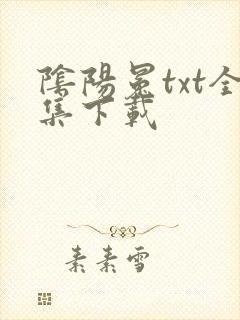 陰陽冕txt全
集下載
素素雪